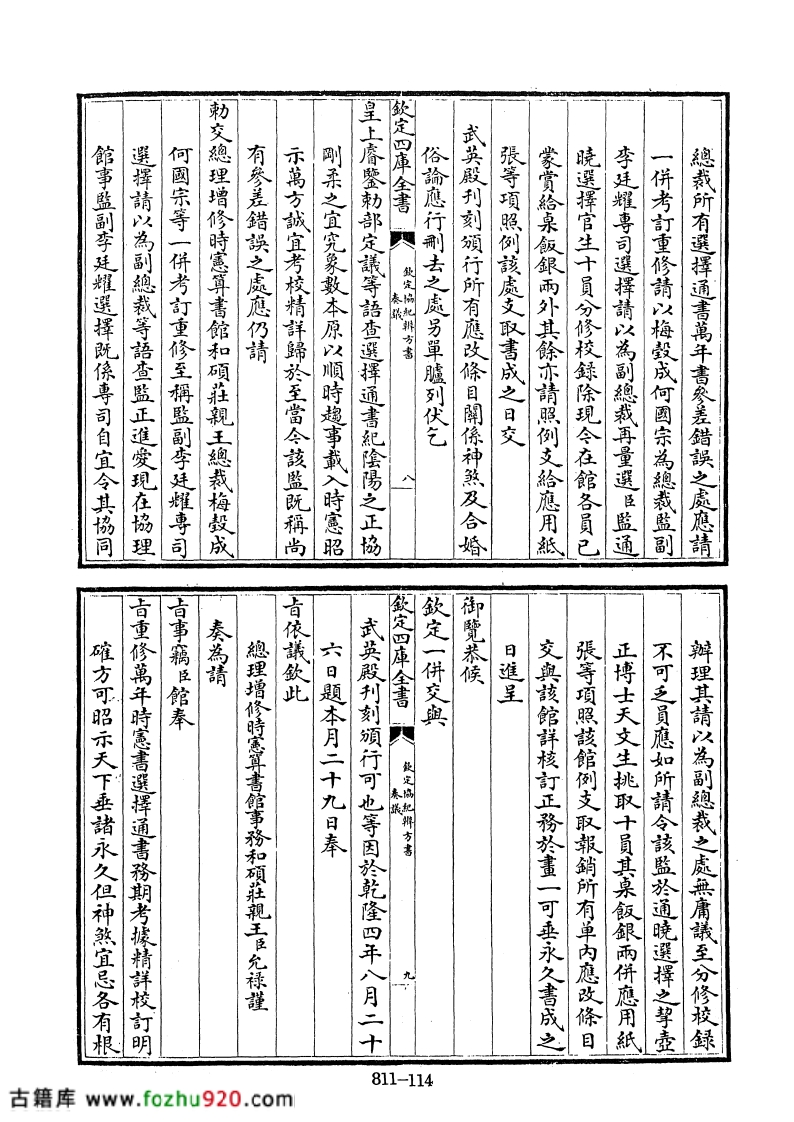 總裁所有選擇通書萬年書參差錯誤之處應請
一併考訂重修請以梅瑴成何國宗為總裁監副
李廷耀專司選擇請以為副總裁再量選臣監通
曉選擇官生十員分修校録除現今在館各員已
蒙賞給桌飯銀兩外其餘亦請照例支給應用紙
張等項照例該處支取書成之日交
武英殿刊刻頒行所有應改條目關係神煞及合婚
俗論應行刪去之處另單臚列伏乞
欽定四庫全書
欽定協紀辨方書
奏議
八
皇上睿鑒勅部定議等語查選擇通書紀陰陽之正協
剛柔之宜究象數本原以順時趨事載入時憲昭
示萬方誠宜考校精詳歸於至當今該監既稱尚
有參差錯誤之處應仍請
勅交總理增修時憲算書館和碩莊親王總裁梅瑴成
何國宗等一併考訂重修至稱監副李廷耀專司
選擇請以為副總裁等語查監正進愛現在協理
館事監副李廷耀選擇既係專司自宜令其協同
辦理其請以為副總裁之處無庸議至分修校録
不可乏員應如所請令該監於通曉選擇之挈壺
正博士天文生挑取十員其桌飯銀兩併應用紙
張等項照該館例支取報銷所有单内應改條目
交與該館詳核訂正務於畫一可垂永久書成之
日進呈
御覽恭候
欽定一併交與
欽定四庫全書
欽定協紀辨方書
奏議
九
武英殿刊刻頒行可也等因於乾隆四年八月二十
六日題本月二十九日奉
旨依議欽此
總理增修時憲算書館事務和碩莊親王臣允祿謹
奏為請
旨事竊臣館奉
旨重修萬年時憲書選擇通書務期考據精詳校訂明
確方可昭示天下垂諸永久但神煞宜忌各有根
811—114
古籍库 www.fozhu920.com